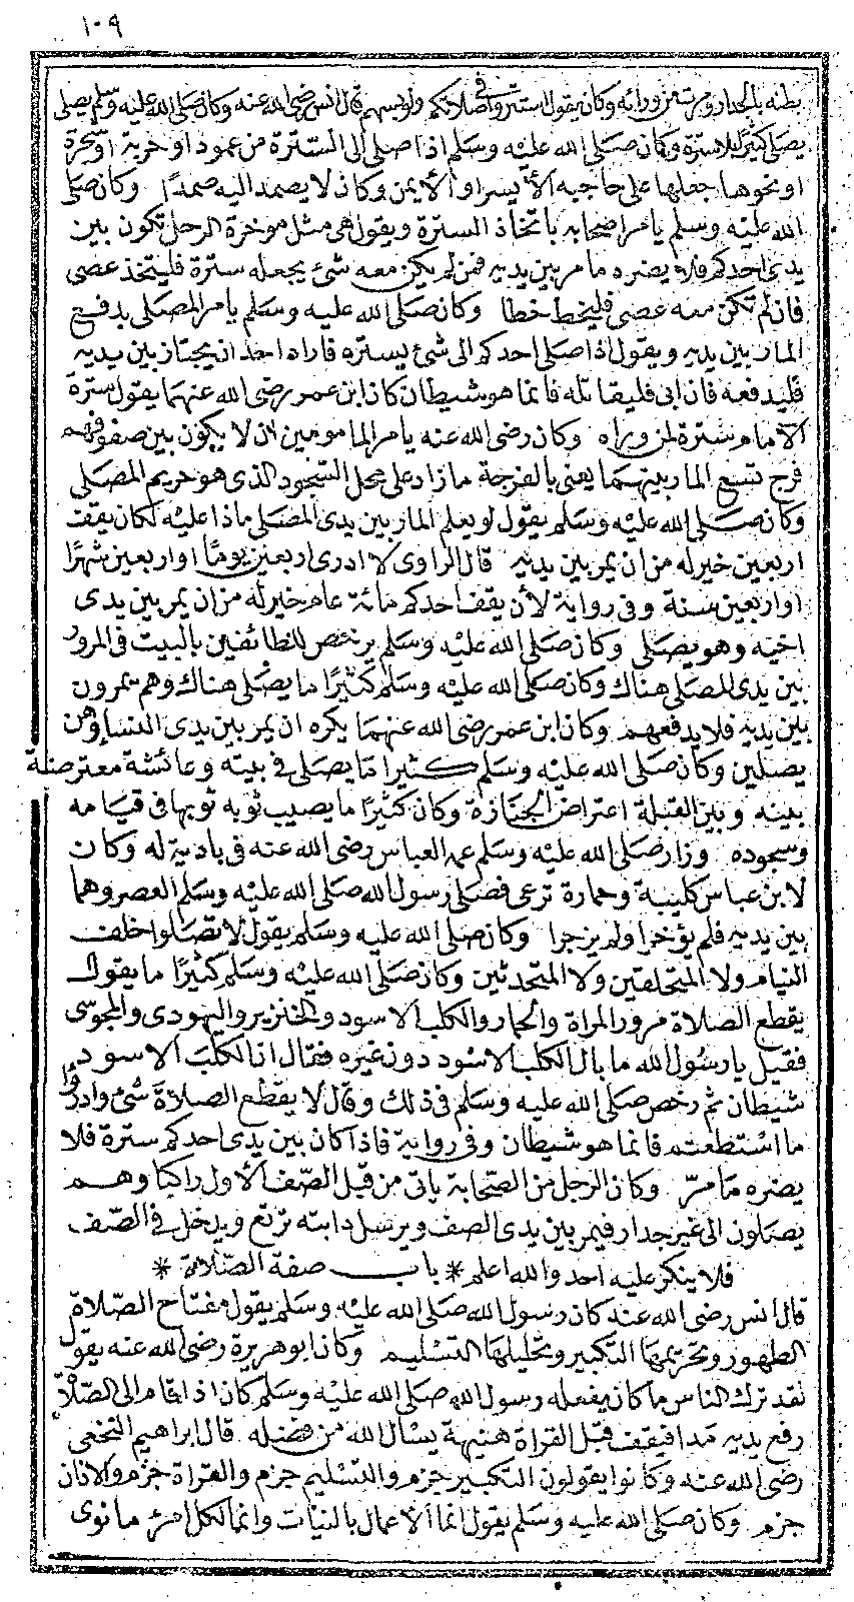 ١٠٩
بطنه بالجدار ومرت من ورائه وكان يقول استتروا في صلاتكم ولو بسهم قال انس رضى الله عنه وكان صلى الله عليه وسلم يصلى
يصلى كثيرًا بلا سترة وكان صلى الله عليه وسلم اذا صلى الى السترة من عمود او حربة او شجرة
او نحوها جعلها على حاجبه الأيسر او الأيمن وكان لا يصمد اليه صمدًا وكان صلى
الله عليه وسلم يامر اصحابه باتخاذ السترة ويقول هى مثل موخرة الرحل تكون بين
يدى احدكم فلا يضره ما مر بين يديه فمن لم يكن معه شئ يجعله سترة فليتخذ عصى
فان لم تكن معه عصى فليخط خطا وكان صلى الله عليه وسلم يامر المصلى بدفع
المار بين يديه ويقول اذا صلى احدكم الى شئ يستره فاراد احد ان يجتاز بين يديه
فليدفعه فان ابى فليقاتله فانما هو شيطان كان ابن عمر رضى الله عنهما يقول سترة
الامام سترة لمن وراه وكان رضى الله عنه يامر المامومين ان لا يكون بين صفوفهم
فرج تسع المار بينهما يعنى بالفرجة ما زاد على محل السجود الذى هو حريم المصلى
وكان صلى الله عليه وسلم يقول لو يعلم المار بين يدى المصلى ماذا عليه لكان يقف
اربعين خير له من ان يمر بين يديه قال الراوى لا ادرى اربعين يومًا او اربعين شهرًا
او اربعين سنة وفى رواية لأن يقف احدكم مائة عام خير له من ان يمر بين يدى
اخيه وهو يصلى وكان صلى الله عليه وسلم يرخص للطائفين بالبيت فى المرور
بين يدى المصلى هناك وكان صلى الله عليه وسلم كثيرًا ما يصلى هناك وهم يمرون
بين يديه فلا يدفعهم وكان ابن عمر رضى الله عنهما يكره ان يمر بين يدى النسا وهن
يصلين وكان صلى الله عليه وسلم كثيرا ما يصلى فى بيته وعائشة معترضة
بينه وبين القبلة اعتراض الجنازة وكان كثيرًا ما يصيب ثوبه ثوبها فى قيامه
وسجوده وزار صلى الله عليه وسلم عمه العباس رضى الله عنه فى بادية له وكان
لابن عباس كليبة وحمارة ترعى فصلى رسول الله صلى الله عليه وسلم العصر وهما
بين يديه فلم يؤخرا ولم يزجرا وكان صلى الله عليه وسلم يقول لا تصلوا خلف
النيام ولا المتحلقين ولا المتحدثين وكان صلى الله عليه وسلم كثيرًا ما يقول
يقطع الصلاة مرور المراة والحمار والكلب الاسود والخنزير واليهودى والمجوسى
فقيل يا رسول الله ما بال الكلب الاسود دون غيره فقال ان الكلب الاسود
شيطان ثم رخص صلى الله عليه وسلم فى ذلك وقال لا يقطع الصلاة شئ وادرؤا
ما استطعتم فانما هو شيطان وفى رواية فاذا كان بين يدى احدكم سترة فلا
يضره ما مرّ وكان الرجل من الصحابة ياتى من قبل الصّف الأول راكبا وهم
يصلون الى غير جدار فيمر بين يدى الصف ويرسل دابته ترتع ويدخل فى الصّف
فلا ينكر عليه احد والله اعلم * باب صفة الصّلاة *
قال انس رضى الله عنه كان رسول الله صلى الله عليه وسلم يقول مفتاح الصّلاة
الطهور وتحريمها التكبير وتحليلها التسليم وكان ابو هريرة رضى الله عنه يقول
لقد ترك الناس ما كان يفعله رسول الله صلى الله عليه وسلم كان اذا قام الى الصّلاة
رفع يديه مدا فيقف قبل القراة هنيهة يسال الله من فضله قال ابراهيم النخعى
رضى الله عنه وكانوا يقولون التكبير جزم والتسليم جزم والقراة جزم والاذان
جزم وكان صلى الله عليه وسلم يقول انما الأعمال بالنيات وانما لكل امرئ ما نوى